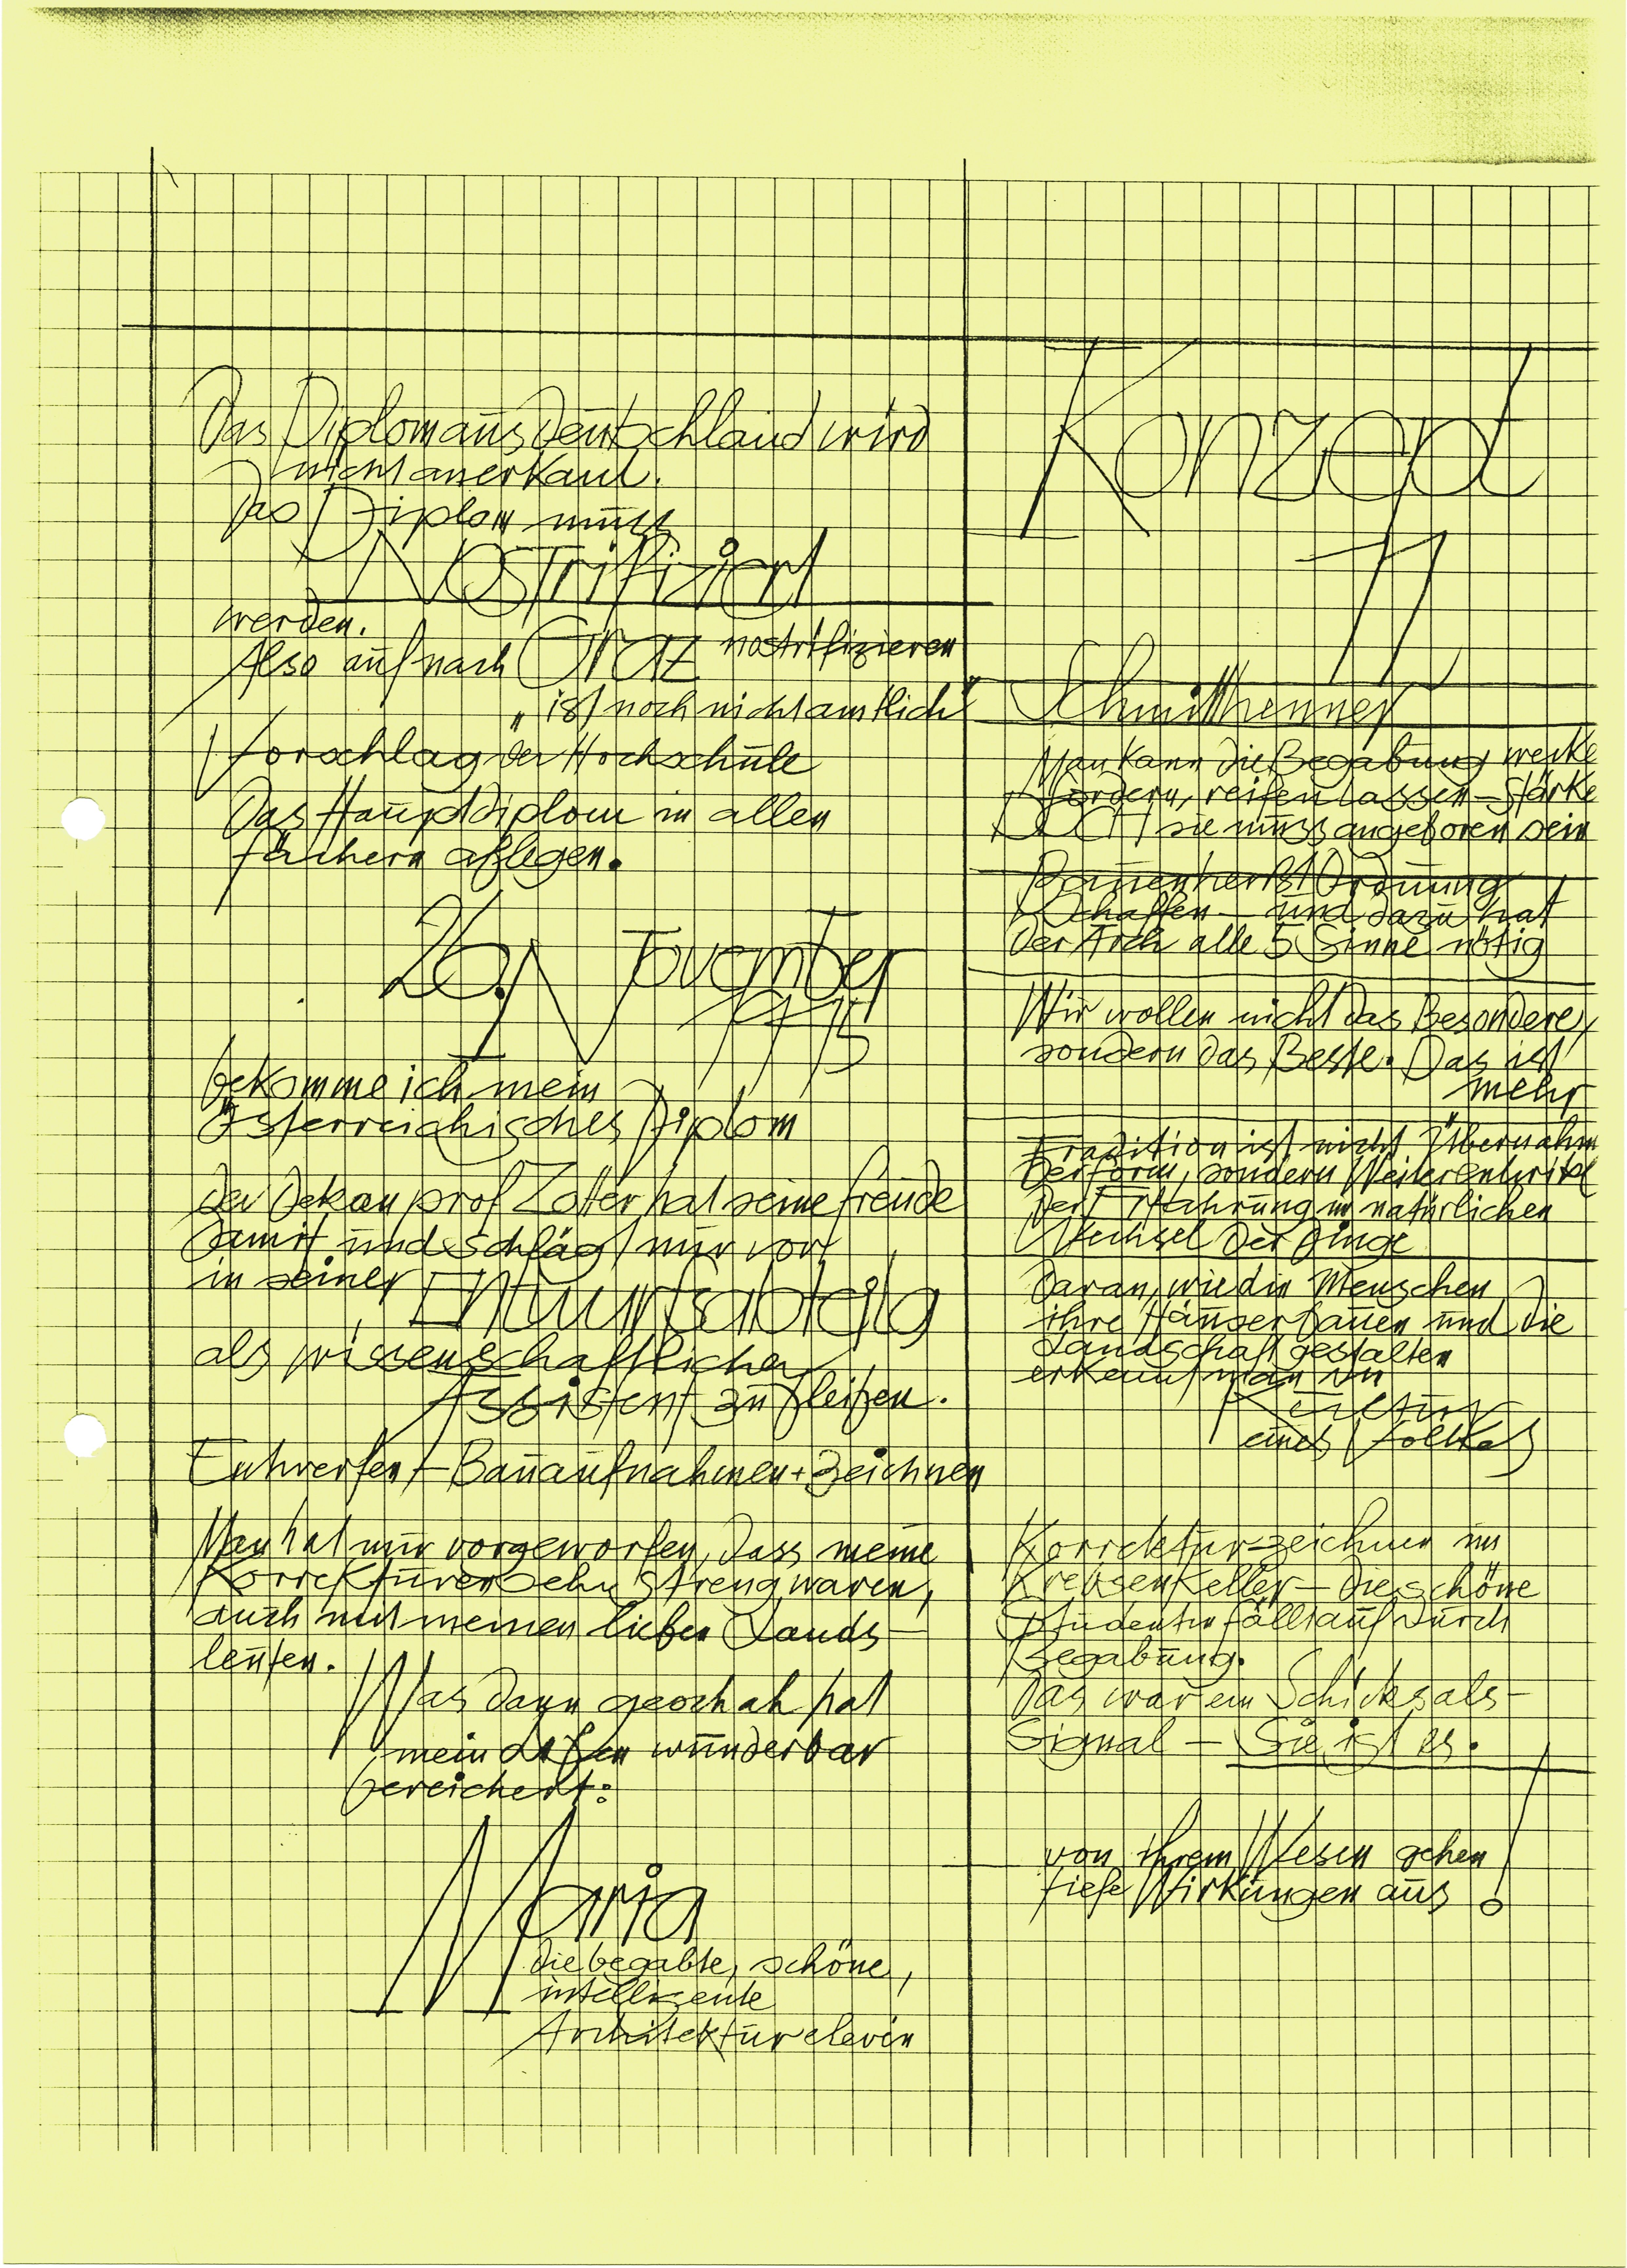 Das Diplom aus Deutschland wird
nicht anerkant.
Das Diplom muss
Nostrifiziert
werden.
Also auf nach Graz nostrifizieren
„ist noch nicht amtlich"
Vorschlag der Hochschule
Das Hauptdiplom in allen
fächern ablegen.
26. November
bekomme ich mein
Österreichisches Diplom
der Dekan prof Zotter hat seine freude
damit und schlägt mir vor
in seiner Entwurfsabteilg
als wissenschaftlicher
Assistent zu bleiben.
Entwerfen + Bauaufnahmen + Zeichnen
Man hat mir vorgeworfen, dass meine
Korrekturen sehr streng waren,
auch mit meinen lieben Lands-
leuten.
Was dann geschah hat
mein Leben wunderbar
bereichert:
Maria
die begabte, schöne,
intelligente
Architektur elevin
Konzept
11
Schmitthenner
Man kann die Begabung wecke
fördern, reifen lassen – stärke
DOCH sie muss angeboren sein
Bauen heißt Ordnung
Schaffen – und dazu hat
der Arch alle 5 Sinne nötig
Wir wollen nicht das Besondere,
sondern das Beste. Das ist
mehr
Tradition ist nicht Übernahm
der form, sondern Weiterentwikl
der Erfahrung im natürlichen
Wechsel der Dinge
Daran, wie die Menschen
ihre Häuser bauen und die
Landschaft gestalten
erkennt man die
Kultur
eines Volkes
Korrektur-zeichnen im
Krebsenkeller – die schöne
Studentin fällt auf durch
Begabung.
Das war ein Schicksals-
Signal – Sie ist es.
von ihrem Wesen gehen
tiefe Wirkungen aus !